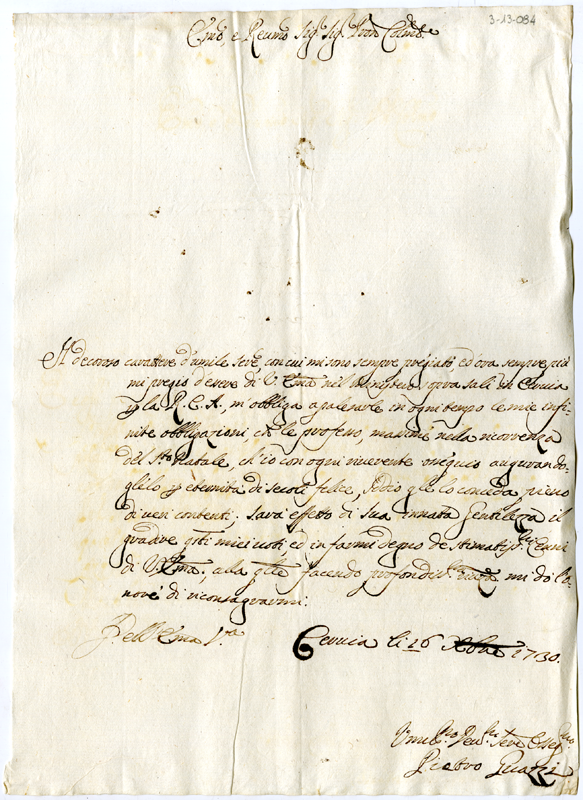 3-13-084
Emo, e Reumo Sig. Sig. Pron Colmo
Il decoroso carattere d'umile serve, con cui mi sono sempre pregiato ed ora sempre più
mi pregio d'essere di V. Ema nel Ministero sopra sali in Cervia
p la R. C. A. m'obbliga a palesarle in ogni tempo le mie infi-
nite obbligazioni che le professo, massime nella ricorrenza
del Sto Natale, ch'io con ogni riverente ossequio augurando-
glilo p eternità di secoli felice, Iddio glielo conceda pieno
di veri contenti; sarà effetto di sua innata Gentilezza il
gradire qti miei voti, ed in farmi degno de stimatiss. Cenni
di V. Ema, alla qle facendo profondiss. mi dò l'o-
nore di riconsagrarmi:
Dell' Ema Vra
Cervia li 16 Xbre 1730.
Umilmo Sere
Pietro Guazzi